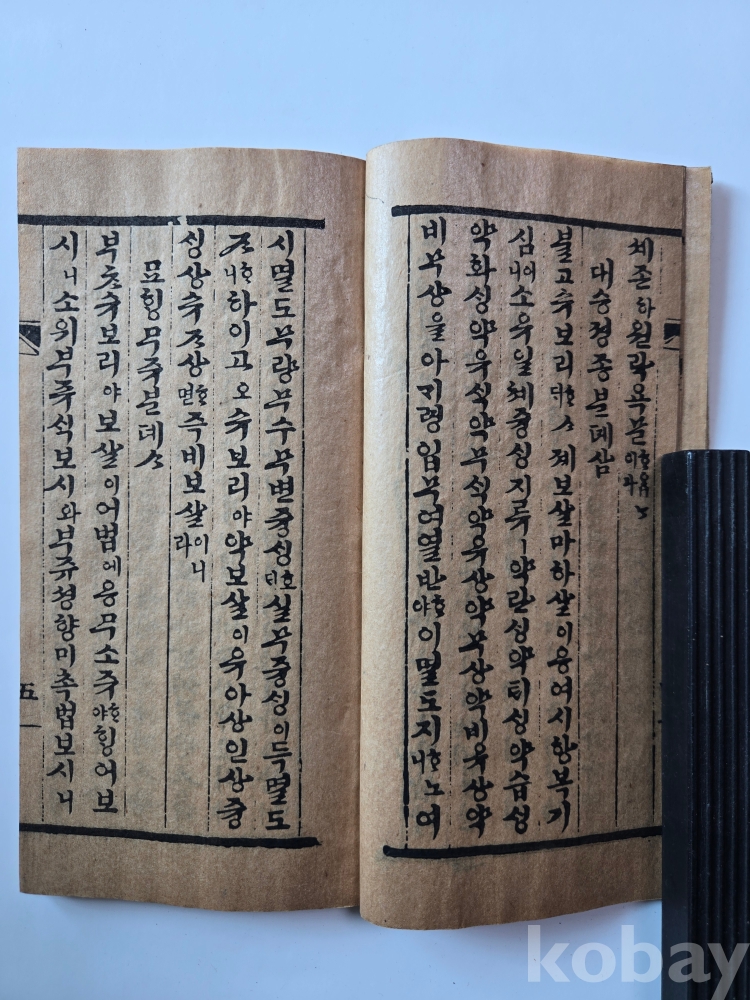 세존하원락욕문
대승졍종분뎨삼
불고슈보리ᄒᆞᄉᆞ더졔보살마하살이응여시항복기
심이니소유일체중싱지류ㅣ약란싱약티싱약습싱
약화싱약유식약무식약유상약무상약비유상약
비무상을아기령입무여열반ᄒᆞ야이멸도지ᄒᆞ니노여
시멸도무량무수무변중싱호ᄃᆡ실무중싱이득멸도
ᄌᆞᄒᆞ니하이고오슈보리야약보살이유아상인상중
싱상슈ᄌᆞ상ᄒᆞ면즉비보살이니라
묘힝무쥬분뎨ᄉᆞ
부ᄎᆞ슈보리야보살이어법에응무소쥬ᄒᆞ야힝어보
시니소위부쥬식보시와부쥬셩향미촉법보시니
五